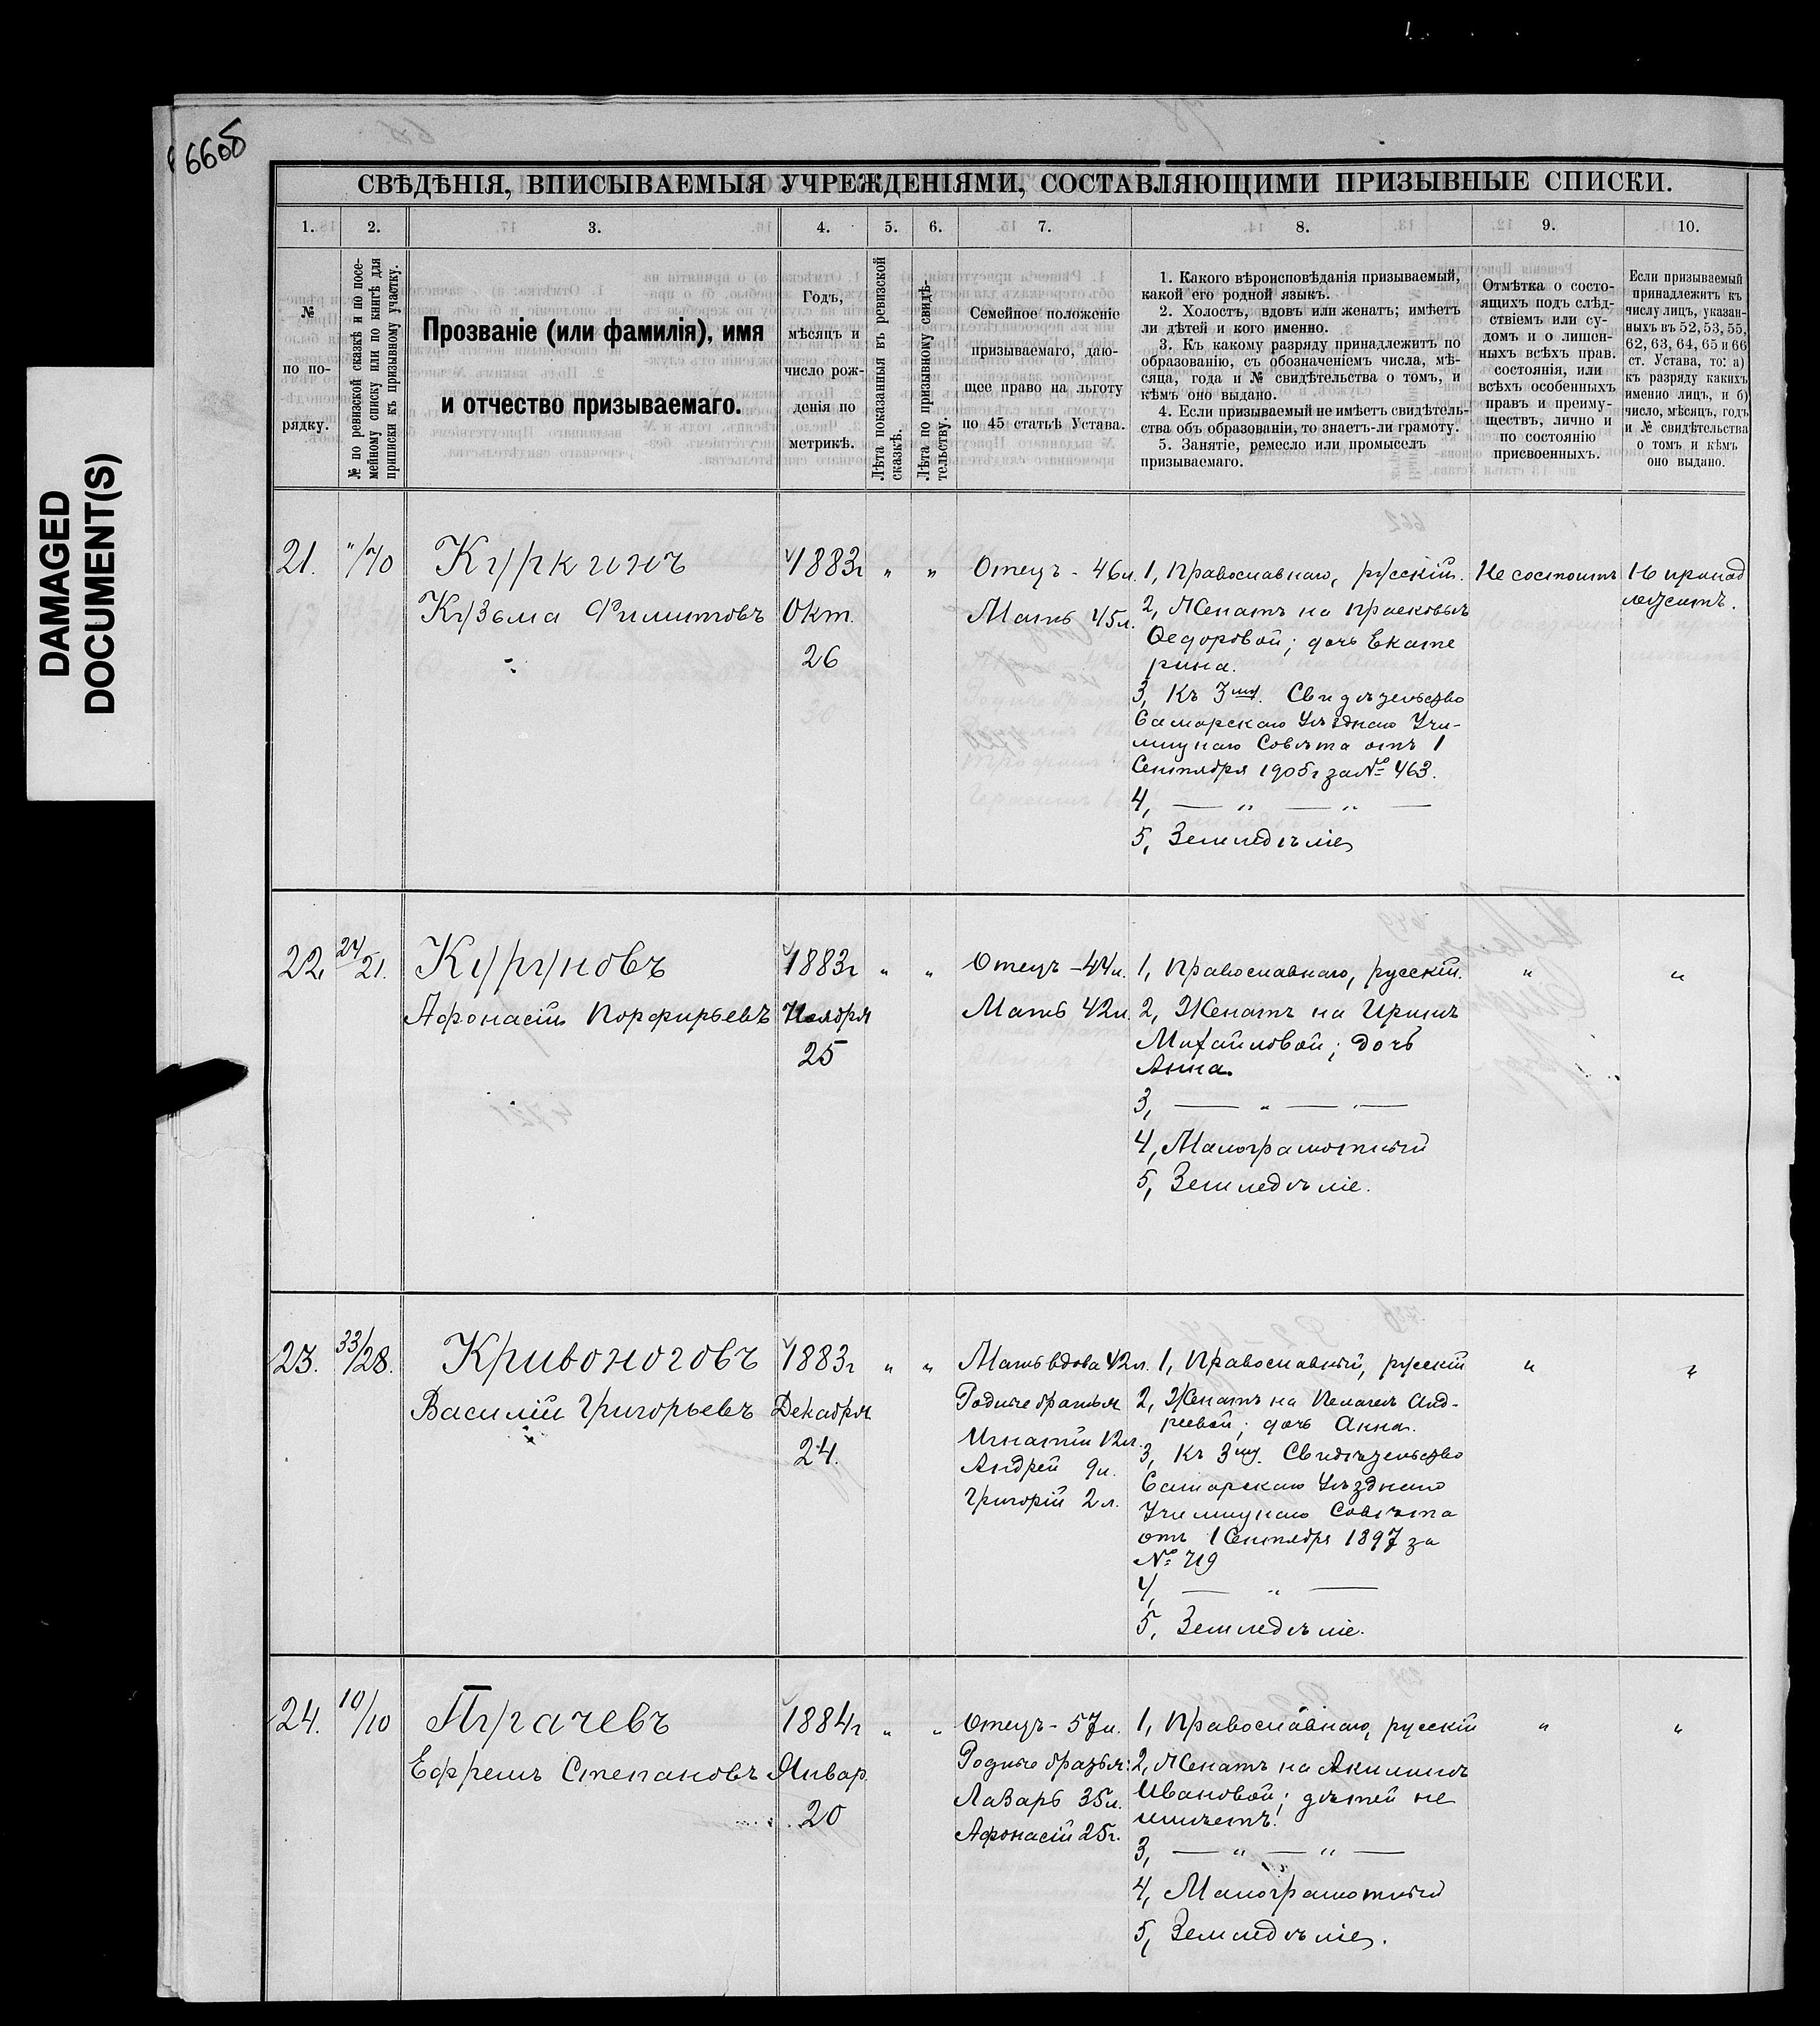 DAMAGED
DOCUMENT(S)
66об
СВѢДѢНІЯ, ВПИСЫВАЕМЫЯ УЧРЕЖДЕНІЯМИ, СОСТАВЛЯЮЩИМИ ПРИЗЫВНЫЕ СПИСКИ.
1. 2. 3. 4. 5. 6. 7. 8. 9. 10.
№
по по-
рядку.
№ по ревизской сказкѣ и по посе-
мейному списку или по книгѣ для
приписки къ призывному участку.
Прозваніе (или фамилія), имя
и отчество призываемаго.
Годъ,
мѣсяцъ и
число рож-
денія по
метрикѣ.
Лѣта показанныя въ ревизской
сказкѣ.
Лѣта по призывному свидѣ-
тельству.
Семейное положеніе
призываемаго, даю-
щее право на льготу
по 45 статьѣ Устава.
1. Какого вѣроисповѣданія призываемый,
какой его родной языкъ.
2. Холостъ, вдовъ или женатъ; имѣетъ
ли дѣтей и кого именно.
3. Къ какому разряду принадлежитъ по
образованію, съ обозначеніемъ числа, мѣ-
сяца, года и № свидѣтельства о томъ, и
кѣмъ оно выдано.
4. Если призываемый не имѣетъ свидѣтель-
ства объ образованіи, то знаетъ-ли грамоту.
5. Занятіе, ремесло или промыселъ
призываемаго.
Отмѣтка о состо-
ящихъ подъ слѣд-
ствіемъ или су-
домъ и о лишен-
ныхъ всѣхъ прав.
состоянія, или
всѣхъ особенныхъ
правъ и преиму-
ществъ, лично и
по состоянію
присвоенныхъ.
Если призываемый
принадлежитъ къ
числу лицъ, указан-
ныхъ въ 52, 53, 55,
62, 63, 64, 65 и 66
ст. Устава, то: а)
къ разряду какихъ
именно лицъ, и б)
число, мѣсяцъ, годъ
и № свидѣтельства
о томъ и кѣмъ
оно выдано.
21.
"/70
Куркинъ
Кузьма Филитовъ
1883г
Окт.
26
" "
Отецъ - 46л.
Мать 45л.
1, Православнаго, русскій.
2, Женатъ на Прасковьѣ
Ѳедоровой; дочь Екате
рина.
3, Къ 3му. Свидѣтельство
Самарскаго Уѣзднаго Учи-
лищнаго Совѣта отъ 1
Сентября 1905г за № 463.
4, — " — " —
5, Земледѣліе
Не состоитъ
Не принад
лежитъ.
22.
24/21.
Кургуновъ
Афонасій Порфирьевъ
1883г
Ноября
25
" "
Отецъ - 44л.
Мать 42л.
1, Православнаго, русскій.
2, Женатъ на Иринѣ
Михайловой; дочь
Анна.
3, — " — " —
4, Малограмотный
5, Земледѣліе.
" "
23.
33/28.
Кривоноговъ
Василій Григорьевъ
1883г
Декабря
24.
" "
Мать вдова 42л.
Родные братья
Игнатій 12л.
Андрей 9л.
Григорій 2л.
1, Православный, русскій
2, Женатъ на Пелагеѣ Анд-
реевой; дочь Анна.
3, Къ 3му. Свидѣтельство
Самарскаго Уѣзднаго
Училищнаго Совѣта
отъ 1 Сентября 1897 за
№ 719
4, — " —
5, Земледѣліе.
" "
24.
10/10
Пугачевъ
Ефремъ Степановъ
1884г
Январ.
20
" "
Отецъ - 57л.
Родные братья:
Лазарь 35л.
Афонасій 25г.
1, Православнаго, русскій
2, Женатъ на Акилинѣ
Ивановой; дѣтей не
имѣетъ.
3, — " — " —
4, Малограмотный
5, Земледѣліе.
" "